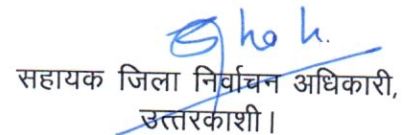 सहायक जिला निर्वाचन अधिकारी,
उत्तरकाशी।